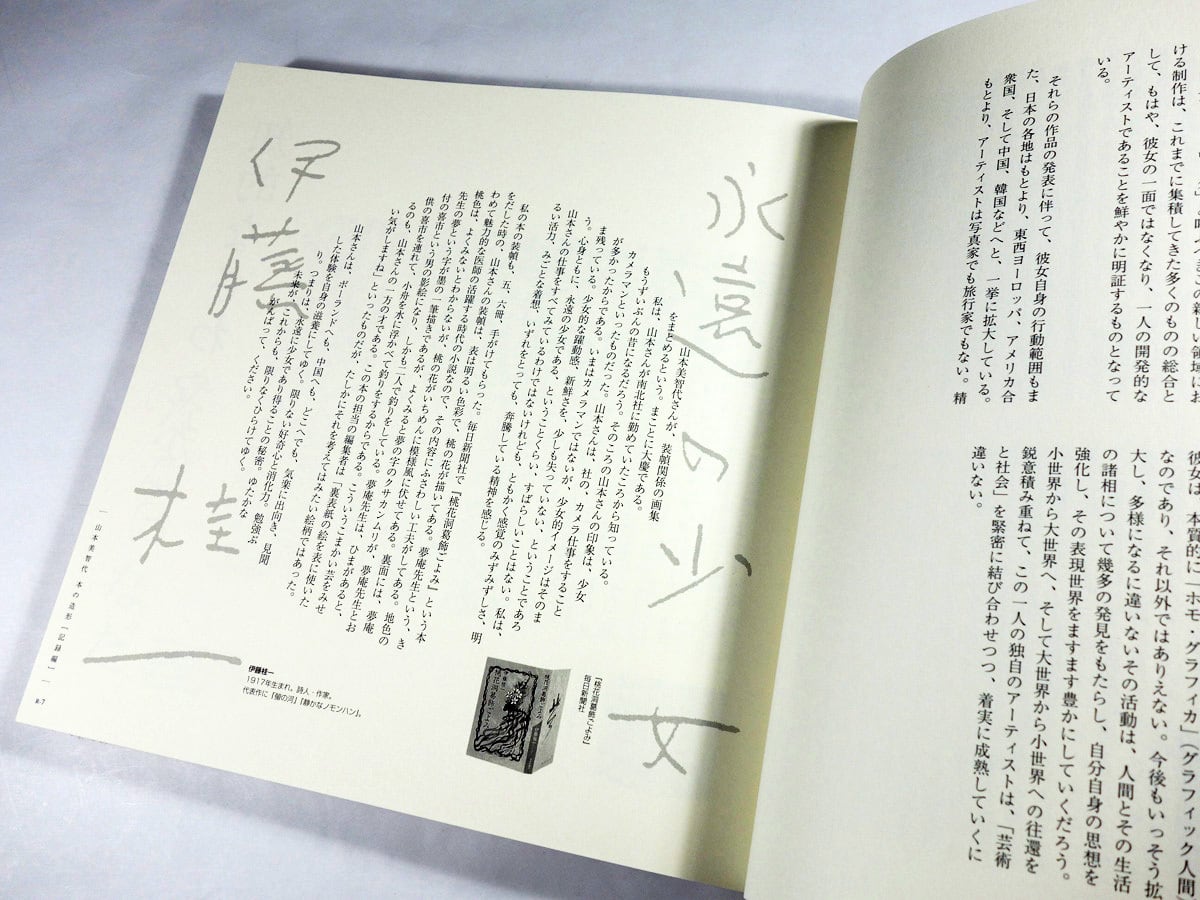 ける制作は、これまでに集積してきた多くのものの総合と
して、もはや、彼女の一面ではなくなり、一人の開発的な
アーティストであることを鮮やかに明証するものとなって
いる。
それらの作品の発表に伴って、彼女自身の行動範囲もま
た、日本の各地はもとより、東西ヨーロッパ、アメリカ合
衆国、そして中国、韓国などへと、一挙に拡大している。
もとより、アーティストは写真家でも旅行家でもない。精
彼女は、本質的に「ホモ・グラフィカ」(グラフィック人間)
なのであり、それ以外ではありえない。今後もいっそう拡
大し、多様になるに違いないその活動は、人間とその生活
の諸相について幾多の発見をもたらし、自分自身の思想を
強化し、その表現世界をますます豊かにしていくだろう。
小世界から大世界へ、そして大世界から小世界への往還を
鋭意積み重ねて、この一人の独自のアーティストは、「芸術
と社会」を緊密に結び合わせつつ、着実に成熟していくに
違いない。
永遠の少女
山本美智代さんが、装幀関係の画集
をまとめるという。まことに大慶である。
私は、山本さんが南北社に勤めていたころから知っている。
もうずいぶんの昔になるだろう。そのころの山本さんは、少女
カメラマンといったものだった。山本さんの印象は、
が多かったからである。いまはカメラマンではないが、少女的イメージはそのま
ま残っている。少女的な躍動感、新鮮さを、少しも失っていない、ということであろ
う。心身ともに、永遠の少女である、ということくらい、すばらしいことはない。私は、
山本さんの仕事をすべてみているわけではないけれども、ともかく感覚のみずみずしさ、明
るい活力、みごとな着想、いずれをとっても、奔騰している精神を感じる。
私の本の装幀も、五、六冊、手がけてもらった。毎日新聞社で『桃花洞葛飾ごよみ』という本
をだした時の、山本さんの装幀は、表は明るい色彩で、桃の花が描いてある。夢庵先生という、き
わめて魅力的な医師の活躍する時代の小説なので、その内容にふさわしい工夫がしてある。地色の
桃色は、よくみないとわからないが、桃の花がいちめんに模様風に伏せてある。裏面には、夢庵
先生の夢という字が墨の一筆描きであるが、よくみると夢の字のクサカンムリが、夢庵先生とお
付の喜市という男の影絵になり、しかも二人で釣りをしている。夢庵先生は、ひまがあると、
供の喜市を連れて、小舟を水に浮かべて釣りをするからである。こういうこまかい芸をみせ
るのも、山本さんの一方の才である。この本の担当の編集者は「裏表紙の絵を表に使いた
い気がしますね」といったものだが、たしかにそれを考えてはみたい絵柄ではあった。
山本さんは、ポーランドへも、中国へも、どこへでも、気楽に出向き、見聞
した体験を自身の滋養にしてゆく。限りない好奇心と消化力。勉強ぶ
り。つまりは、永遠に少女であり得ることの秘密。ゆたかな
未来が、これからも、限りなくひらけてゆく。
がんばって、ください。
伊藤桂一
『桃花洞葛飾ごよみ』
毎日新聞社
伊藤桂一
1917年生まれ。詩人・作家。
代表作に「螢の河」「静かなノモンハン」。
山本美智代 本の造形［記録編］
R-7